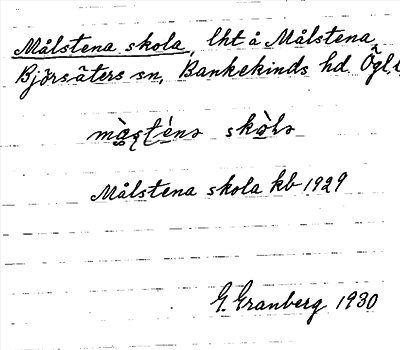 Målstena skola, lht å Målstena
Björsäters sn, Bankekinds hd Ögl
skola
Målstena skola kb 1929
G. Granberg 1930